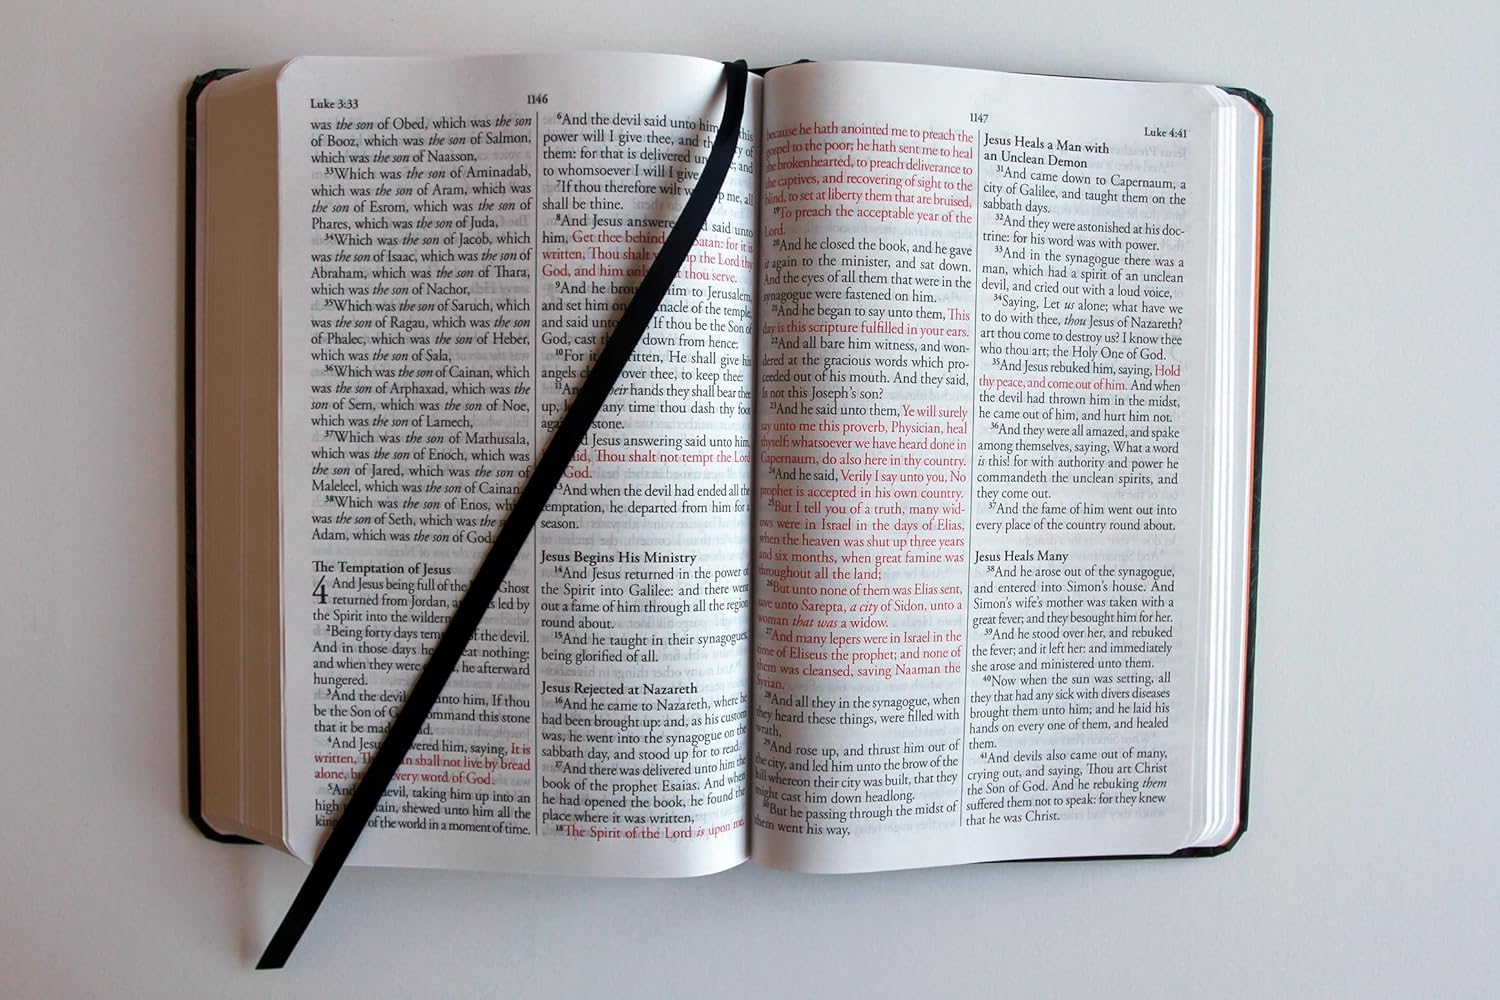 Luke 3:33
1146
was the son of Obed, which was the son
of Booz, which was the son of Salmon,
which was the son of Naasson,
33Which was the son of Aminadab,
which was the son of Aram, which was
the son of Esrom, which was the son of
Phares, which was the son of Juda,
34Which was the son of Jacob, which
was the son of Isaac, which was the son of
Abraham, which was the son of Thara,
which was the son of Nachor,
35Which was the son of Saruch, which
was the son of Ragau, which was the son
of Phalec, which was the son of Heber,
which was the son of Sala,
36Which was the son of Cainan, which
was the son of Arphaxad, which was the
son of Sem, which was the son of Noe,
which was the son of Lamech,
37Which was the son of Mathusala,
which was the son of Enoch, which was
the son of Jared, which was the son of
Maleleel, which was the son of Cainan,
38Which was the son of Enos, which
was the son of Seth, which was the
Adam, which was the son of God.
The Temptation of Jesus
4 And Jesus being full of the Ghost
returned from Jordan, and was led by
the Spirit into the
2Being forty days of the devil.
And in those days he eat nothing:
and when they were he afterward
hungered.
3And the devil unto him, If thou
be the Son of command this stone
that it be
4And Jesus him, saying, It is
written, shall not live by bread
alone, every word of God.
5And devil, taking him up into an
high shewed unto him all the
of the world in a moment of time.
6And the devil said unto him, this
power will I give thee, and of
them: for that is delivered and
to whomsoever I will I give
7If thou therefore wilt me, all
shall be thine.
8And Jesus answered said unto
him, Get thee behind Satan: for it is
written, Thou shalt the Lord thy
God, and him thou serve.
9And he him to Jerusalem,
and set him on of the temple,
and said unto If thou be the Son of
God, cast down from hence:
10For it written, He shall give his
angels over thee, to keep thee:
11And their hands they shall bear thee
up, any time thou dash thy foot
stone.
Jesus answering said unto him,
Thou shalt not tempt the Lord
God.
13And when the devil had ended all the
temptation, he departed from him for a
season.
Jesus Begins His Ministry
14And Jesus returned in the power of
the Spirit into Galilee: and there went
out a fame of him through all the region
round about.
15And he taught in their synagogues,
being glorified of all.
Jesus Rejected at Nazareth
16And he came to Nazareth, where he
had been brought up: and, as his custom
was, he went into the synagogue on the
sabbath day, and stood up for to read.
17And there was delivered unto him the
book of the prophet Esaias. And when
he had opened the book, he found the
place where it was written,
18The Spirit of the Lord is upon me,
1147
Luke 4:41
because he hath anointed me to preach the
gospel to the poor; he hath sent me to heal
the brokenhearted, to preach deliverance to
the captives, and recovering of sight to the
blind, to set at liberty them that are bruised,
19To preach the acceptable year of the
Lord.
20And he closed the book, and he gave
it again to the minister, and sat down.
And the eyes of all them that were in the
synagogue were fastened on him.
21And he began to say unto them, This
day is this scripture fulfilled in your ears.
22And all bare him witness, and won-
dered at the gracious words which pro-
ceeded out of his mouth. And they said,
Is not this Joseph's son?
23And he said unto them, Ye will surely
say unto me this proverb, Physician, heal
thyself: whatsoever we have heard done in
Capernaum, do also here in thy country.
24And he said, Verily I say unto you, No
prophet is accepted in his own country.
25But I tell you of a truth, many wid-
ows were in Israel in the days of Elias,
when the heaven was shut up three years
and six months, when great famine was
throughout all the land;
26But unto none of them was Elias sent,
save unto Sarepta, a city of Sidon, unto a
woman that was a widow.
27And many lepers were in Israel in the
time of Eliseus the prophet; and none of
them was cleansed, saving Naaman the
Syrian.
28And all they in the synagogue, when
they heard these things, were filled with
wrath,
29And rose up, and thrust him out of
the city, and led him unto the brow of the
hill whereon their city was built, that they
might cast him down headlong.
30But he passing through the midst of
them went his way,
Jesus Heals a Man with
an Unclean Demon
31And came down to Capernaum, a
city of Galilee, and taught them on the
sabbath days.
32And they were astonished at his doc-
trine: for his word was with power.
33And in the synagogue there was a
man, which had a spirit of an unclean
devil, and cried out with a loud voice,
34Saying, Let us alone; what have we
to do with thee, thou Jesus of Nazareth?
art thou come to destroy us? I know thee
who thou art; the Holy One of God.
35And Jesus rebuked him, saying, Hold
thy peace, and come out of him. And when
the devil had thrown him in the midst,
he came out of him, and hurt him not.
36And they were all amazed, and spake
among themselves, saying, What a word
is this! for with authority and power he
commandeth the unclean spirits, and
they come out.
37And the fame of him went out into
every place of the country round about.
Jesus Heals Many
38And he arose out of the synagogue,
and entered into Simon's house. And
Simon's wife's mother was taken with a
great fever; and they besought him for her.
39And he stood over her, and rebuked
the fever; and it left her: and immediately
she arose and ministered unto them.
40Now when the sun was setting, all
they that had any sick with divers diseases
brought them unto him; and he laid his
hands on every one of them, and healed
them.
41And devils also came out of many,
crying out, and saying, Thou art Christ
the Son of God. And he rebuking them
suffered them not to speak: for they knew
that he was Christ.